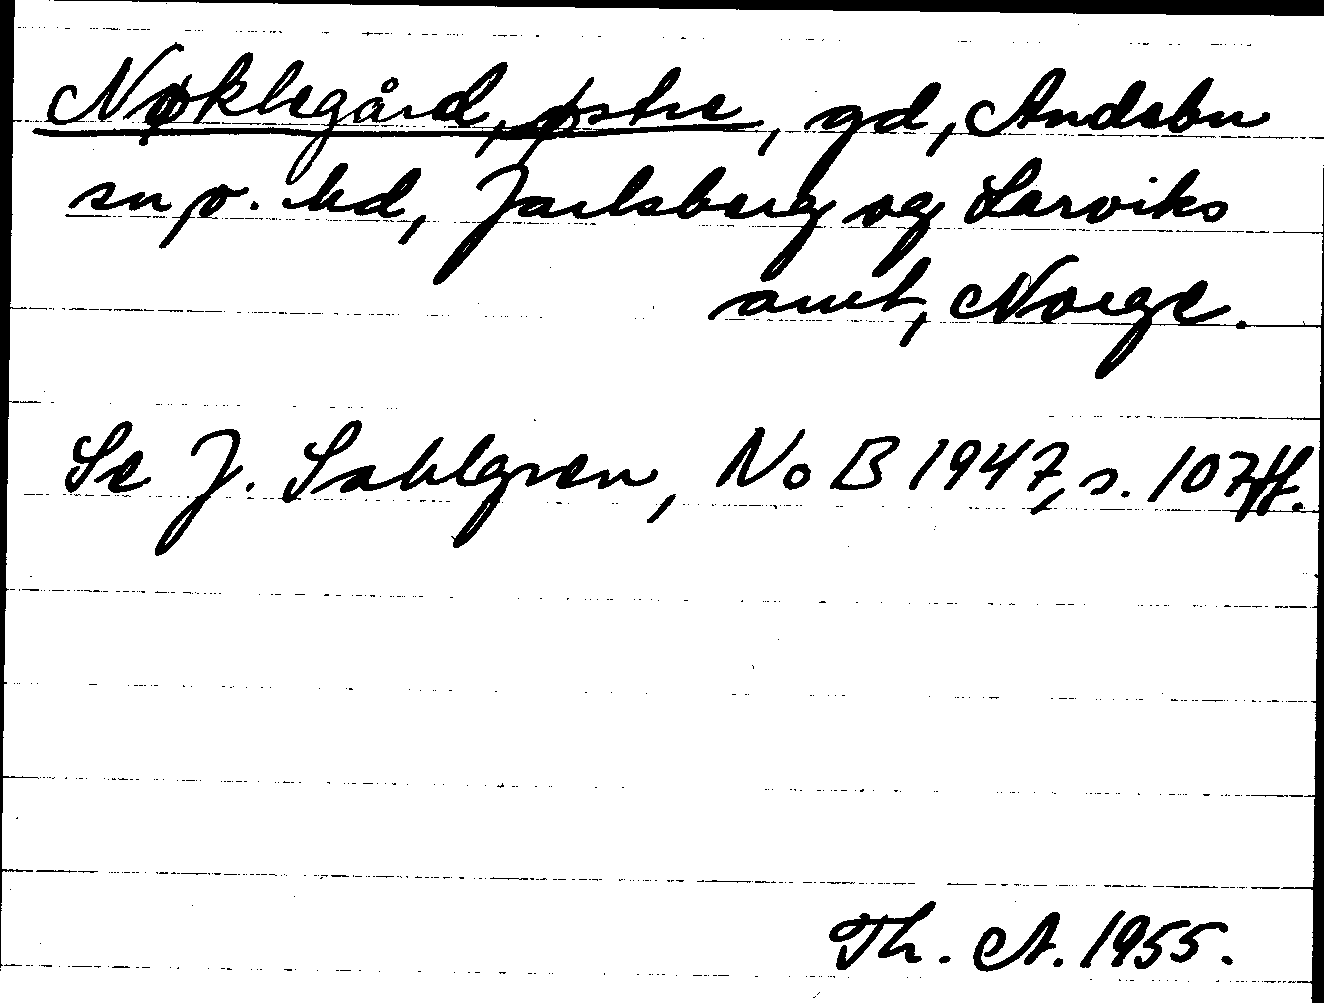 Nøklegård, østre, gd, Andebu
sn o. hd, Jarlsberg og Larviks
amt, Norge.
Se J. Sahlgren, NoB 1947, s. 107ff.
Th. A. 1955.